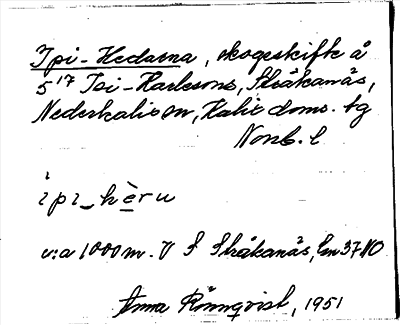 Ipi-Hedarna, skogsskifte å
5¹⁷ Ipi-Karlsons, Stråkanäs,
Nederkalix sn, Kalix doms. tg
Norrb. l
ipi_hèru
v:a 1000 m. V S Stråkanäs, Em 37 NO
Anna Rönnqvist, 1951